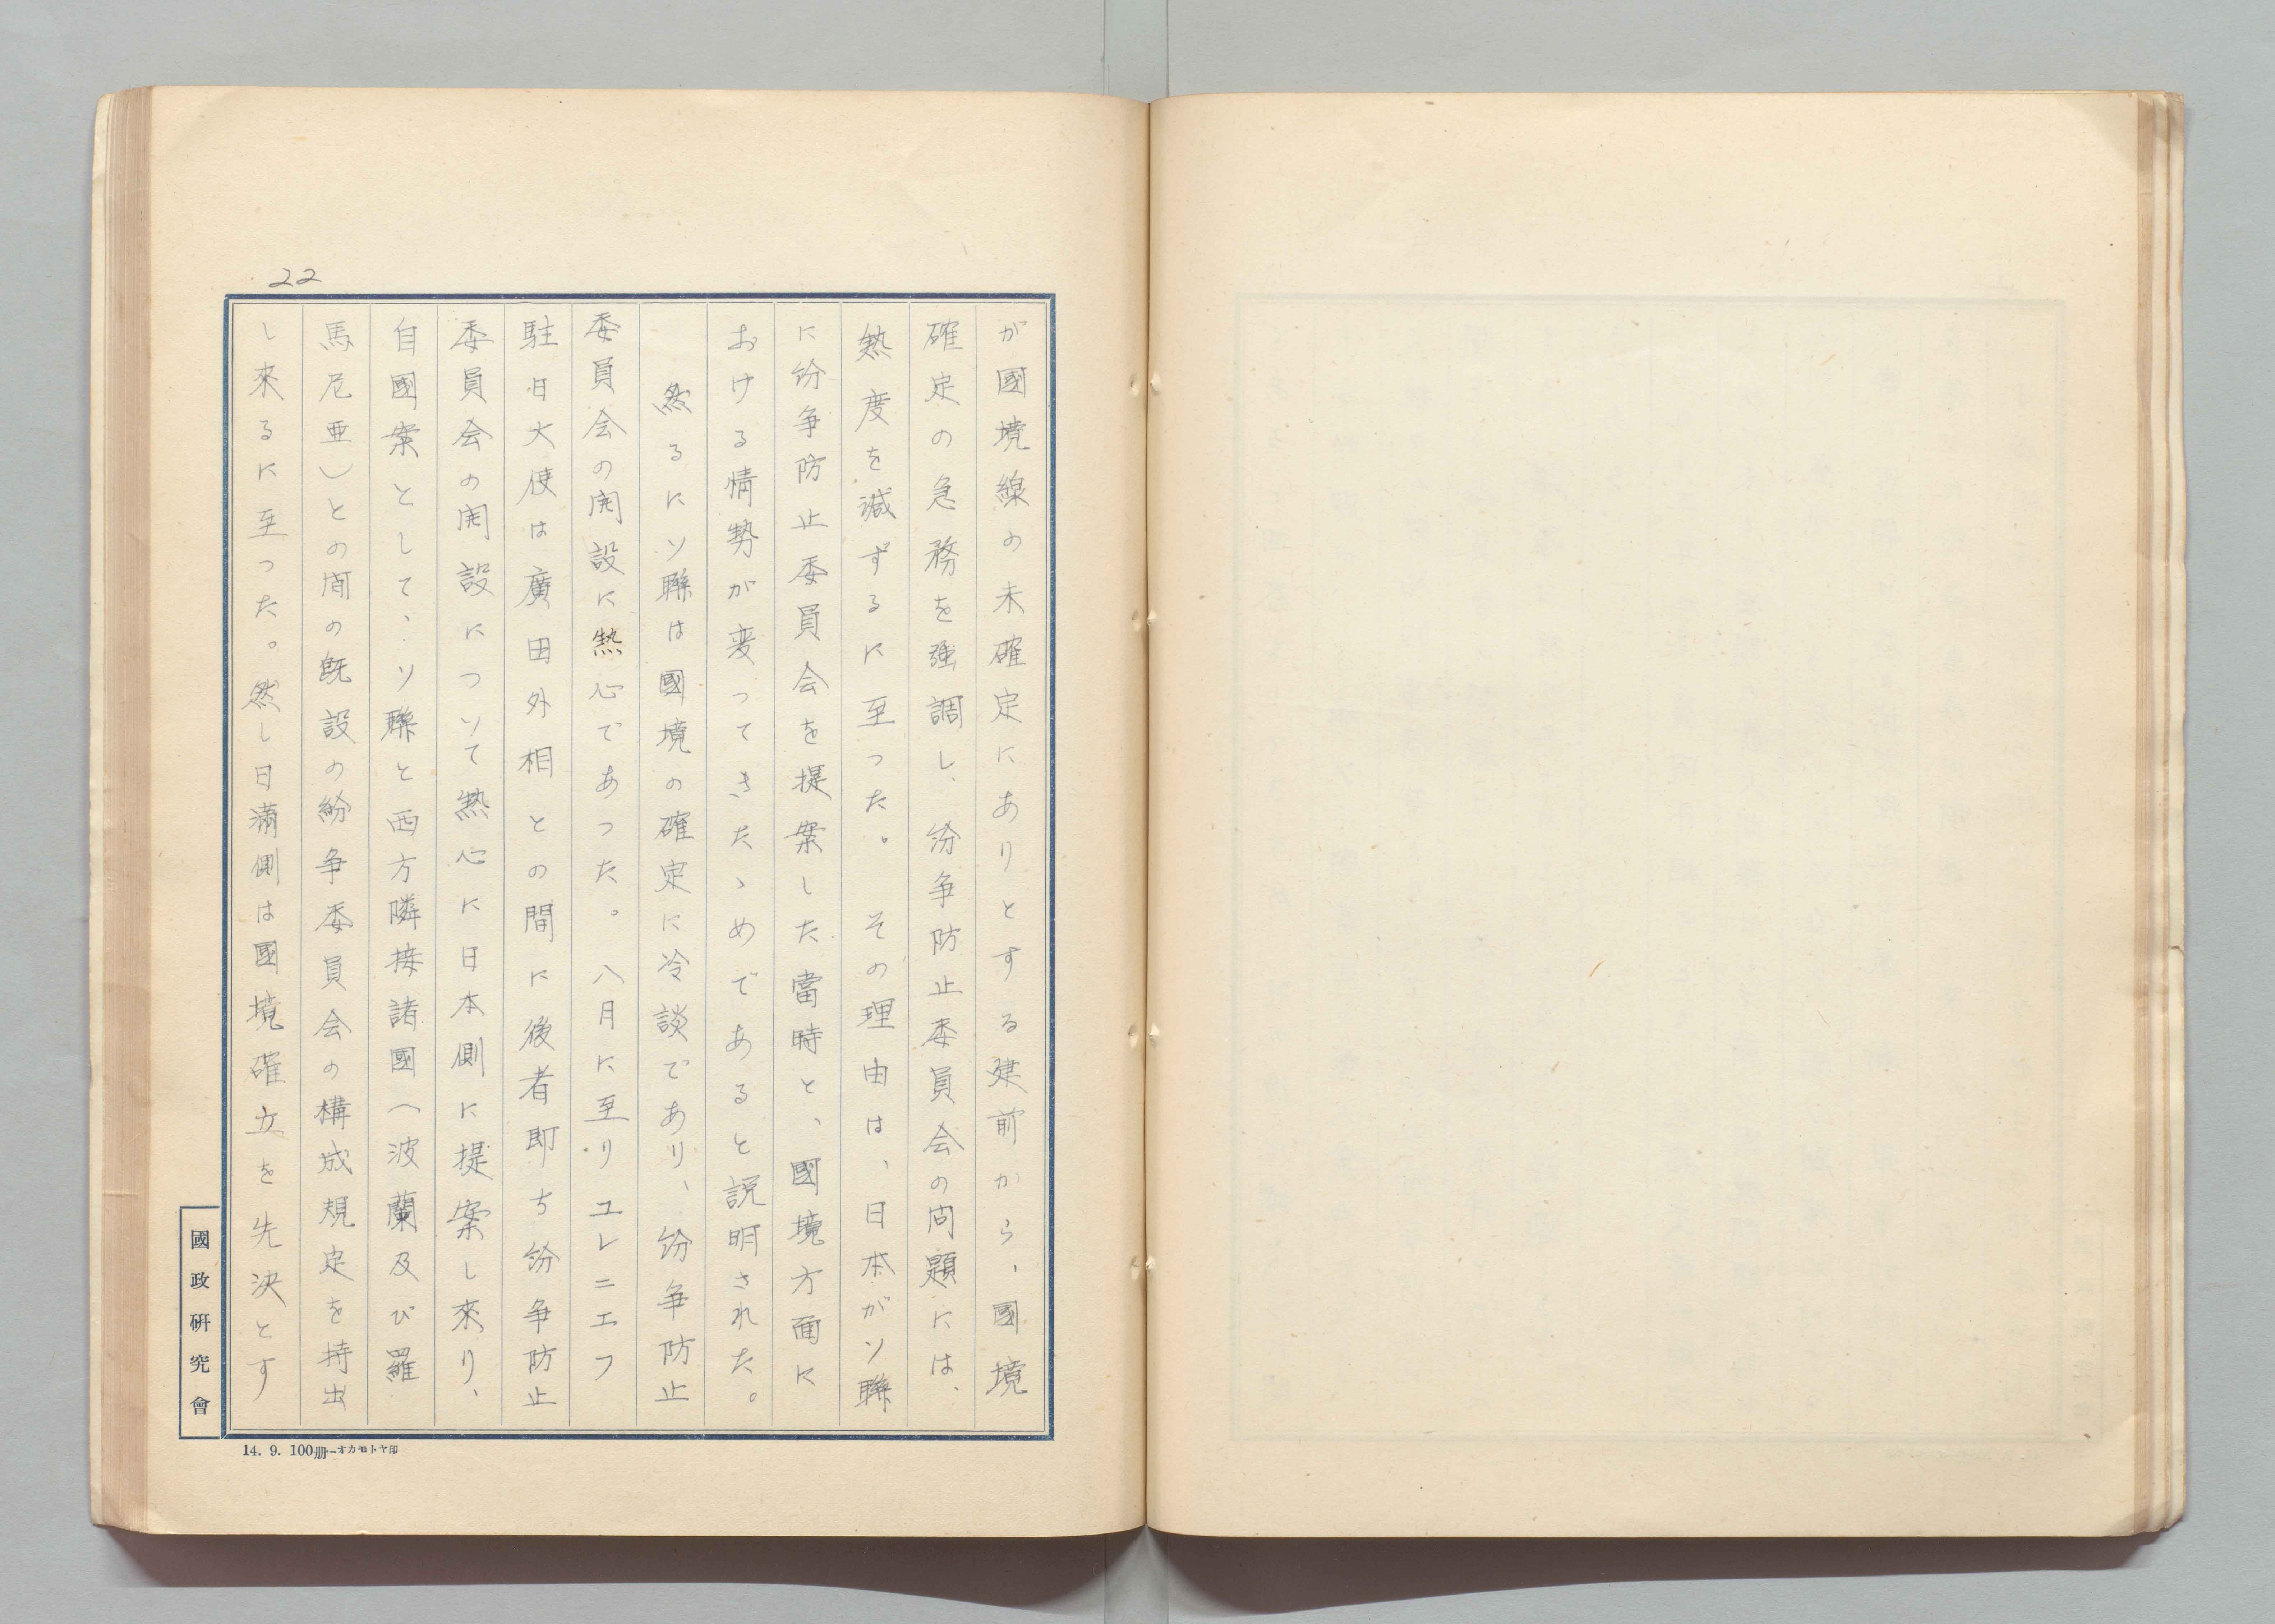 22
が國境線の未確定にありとする建前から、國境
確定の急務を强調し、紛争防止委員会の問題には、
熱度を減ずるに至った。その理由は、日本がソ聯
に紛争防止委員会を提案した當時と、國境方面に
おける情勢が変ってきたゝめであると説明された。
然るにソ聯は國境の確定に冷談であり、紛争防止
委員会の開設に熱心であった。八月に至りユレニエフ
駐日大使は廣田外相との間に後者即ち紛争防止
委員会の開設につソて熱心に日本側に提案し來り、
自國案として、ソ聯と西方隣接諸國(波蘭及び羅
馬尼亜)との間の既設の紛争委員会の構成規定を持出
し來るに至った。然し日満側は國境確立を先決とす
國政硏究會
14. 9. 100册―オカモトヤ印